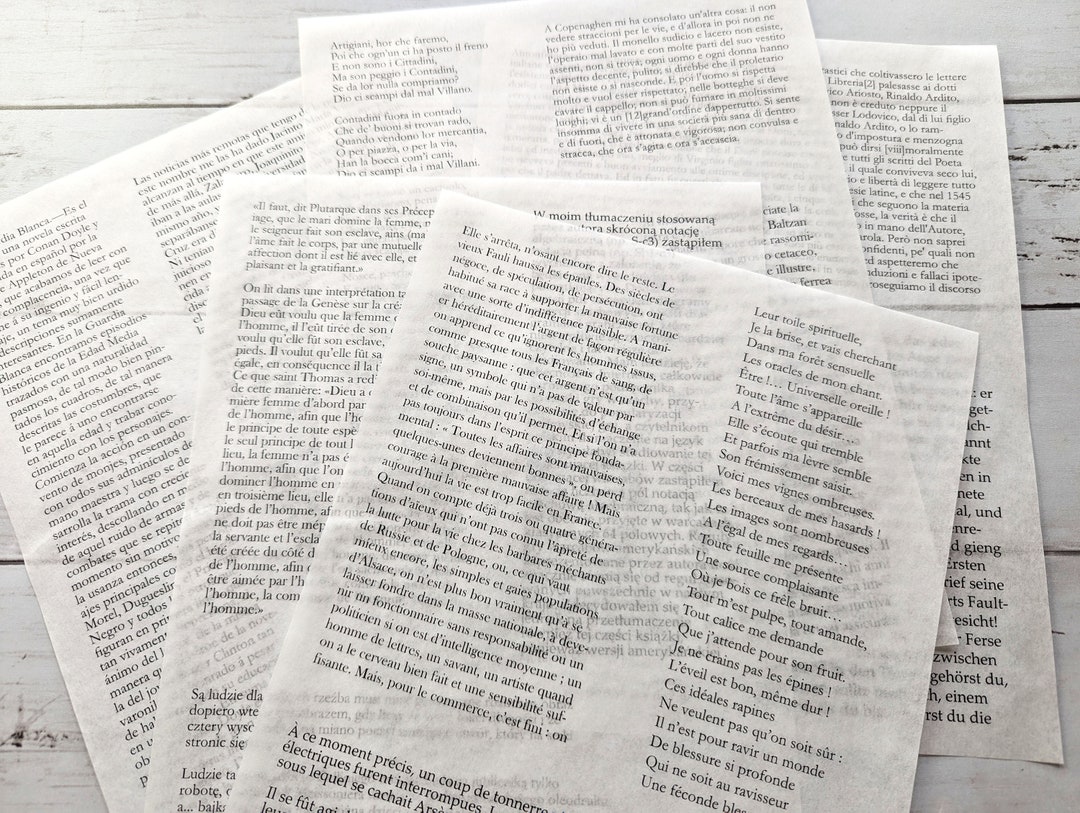 Artigiani, hor che faremo,
Poi che ogn'un ci ha posto il freno
E non sono i Cittadini,
Ma son peggio i Contadini,
Se da lor nulla compriamo?
Dio ci scampi dal mal Villano.
Contadini fuora in contado
Che de' buoni si trovan rado,
Quando vendono lor mercantia,
O pet piazza, o per la via,
Han la bocca com'i cani;
Dio ci scampi da i mal Villani.
A Copenaghen mi ha consolato un'altra cosa: il non
vedere straccioni per le vie, e d'allora in poi non ne
ho più veduti. Il monello sudicio e lacero non esiste,
l'operaio mal lavato e con molte parti del suo vestito
assenti, non si trova; ogni uomo e ogni donna hanno
l'aspetto decente, pulito; si direbbe che il proletario
non esiste o si nasconde. E poi l'uomo si rispetta
molto e vuol esser rispettato; nelle botteghe si deve
cavare il cappello; non si può fumare in moltissimi
luoghi; vi è un [12]grand'ordine dappertutto. Si sente
insomma di vivere in una società più sana di dentro
e di fuori, che è attronata e vigorosa; non convulsa e
stracca, che ora s'agita e ora s'accascia.
tastici che coltivassero le lettere
Libreria[2] palesasse ai dotti
rico Ariosto, Rinaldo Ardito,
è creduto neppure il
sser Lodovico, dal di lui figlio
Rinaldo Ardito, o lo ram-
d'impostura e menzogna
può dirsi [viii]moralmente
e tutti gli scritti del Poeta
il quale conviveva seco lui,
o e libertà di leggere tutto
esie latine, e che nel 1545
che seguono la materia
osse, la verità è che il
o in mano dell'Autore,
arola. Però non saprei
onfidenti, pe' quali non
ed aspetteremo che
duzioni e fallaci ipote-
eseguiamo il discorso
Las noticias más remotas que tengo d
este nombre me las ha dado Jacinto
alcanzan al tiempo en que este ami
de más allá, Zal
iban a las aulas
mismo año,
separában
Cruz era d
dia Blanca.—Es el
una novela escrita
s por Conan Doyle y
ada en español por la
Appleton de Nueva
que acabamos de leer con
complacencia, una vez que
e á su ingenio y fácil len-
aje, un tema muy bien urdido
descripciones sumamente
interesantes. En la Guardia
Blanca encontramos episodios
históricos de la Edad Media
trazados con una naturalidad
pasmosa, de tal modo bien pin-
tados los cuadros, de tal manera
descritas las costumbres, que
le parece á uno encontrarse
en aquella edad y trabar cono-
cimiento con los personajes.
Comienza la acción en un con-
vento de monjes, presentado
con todos sus adminículos de
mano maestra y luego se de-
sarrolla la trama con crecie
interés, descollando en m
de aquel ruido de armas
combates que se repite
momento sin motivo
la usanza entonces,
ajes principales co
Morel, Duguescli
Negro y todos
figuran en pri
tan vivament
ánimo del l
manera qu
del jo
varonil
de ha
en u
ob
«Il faut, dit Plutarque dans ses Précep
iage, que le mari domine la femme, n
le seigneur fait son esclave, ains (ma
l'âme fait le corps, par une mutuelle
affection dont il est lié avec elle, et
plaisant et la gratifiant.»
On lit dans une interprétation ta
passage de la Genèse sur la créa
Dieu eût voulu que la femme d
l'homme, il l'eût tirée de son
voulu qu'elle fût son esclave,
pieds. Il voulut qu'elle fût sa
égale, en conséquence il la t
Ce que saint Thomas a red
de cette manière: «Dieu a c
mière femme d'abord par
de l'homme, afin que l'ho
le principe de toute espè
le seul principe de tout l
lieu, la femme n'a pas é
l'homme, afin que l'on
dominer l'homme en
en troisième lieu, elle
pieds de l'homme, afin
ne doit pas être mép
la servante et l'escla
été créée du côté d
de l'homme, afin
être aimée par l'h
l'homme, la com
l'homme.»
Są ludzie dla
dopiero wte
cztery wyso
stronic się
Ludzie ta
robotę, c
a... bajk
W moim tłumaczeniu stosowaną
autora skróconą notację
zastąpiłem
ciate la
Baltzan
e rassomi-
o cetaceo,
e illustre,
ferrea
Elle s'arrêta, n'osant encore dire le reste. Le
vieux Fauli haussa les épaules. Des siècles de
négoce, de spéculation, de persécution, ont
habitué sa race à supporter la mauvaise fortune
avec une sorte d'indifférence paisible. A mani-
er héréditairement l'argent de façon régulière
on apprend ce qu'ignorent les hommes issus,
comme presque tous les Français de sang, de
souche paysanne : que cet argent n'est qu'un
signe, un symbole qui n'a pas de valeur par
soi-même, mais par les possibilités d'échange
et de combinaison qu'il permet. Et si l'on n'a
pas toujours dans l'esprit ce principe fonda-
mental : « Toutes les affaires sont mauvaises,
quelques-unes deviennent bonnes », on perd
courage à la première mauvaise affaire ! Mais
aujourd'hui la vie est trop facile en France.
Quand on compte déjà trois ou quatre généra-
tions d'aïeux qui n'ont pas connu l'âpreté de
la lutte pour la vie chez les barbares méchants
de Russie et de Pologne, ou, ce qui vaut
mieux encore, les simples et gaies populations
d'Alsace, on n'est plus bon vraiment qu'à se
laisser fondre dans la masse nationale, à deve-
nir un fonctionnaire sans responsabilité ou un
politicien si on est d'intelligence moyenne ; un
homme de lettres, un savant, un artiste quand
on a le cerveau bien fait et une sensibilité suf-
fisante. Mais, pour le commerce, c'est fini : on
À ce moment précis, un coup de tonnerre
électriques furent interrompues.
sous lequel se cachait Arsè
Il se fût agi
Leur toile spirituelle,
Je la brise, et vais cherchant
Dans ma forêt sensuelle
Les oracles de mon chant.
Être !… Universelle oreille !
Toute l'âme s'appareille
A l'extrême du désir…
Elle s'écoute qui tremble
Et parfois ma lèvre semble
Son frémissement saisir.
Voici mes vignes ombreuses.
Les berceaux de mes hasards !
Les images sont nombreuses
A l'égal de mes regards…
Toute feuille me présente
Une source complaisante
Où je bois ce frêle bruit…
Tout m'est pulpe, tout amande,
Tout calice me demande
Que j'attende pour son fruit.
Je ne crains pas les épines !
L'éveil est bon, même dur !
Ces idéales rapines
Ne veulent pas qu'on soit sûr :
Il n'est pour ravir un monde
De blessure si profonde
Qui ne soit au ravisseur
Une féconde bles
: er
get-
ich-
annt
en in
nete
al, und
nre-
d gieng
Ersten
rief seine
rts Fault-
esicht!
r Ferse
zwischen
gehörst du,
h, einem
rst du die